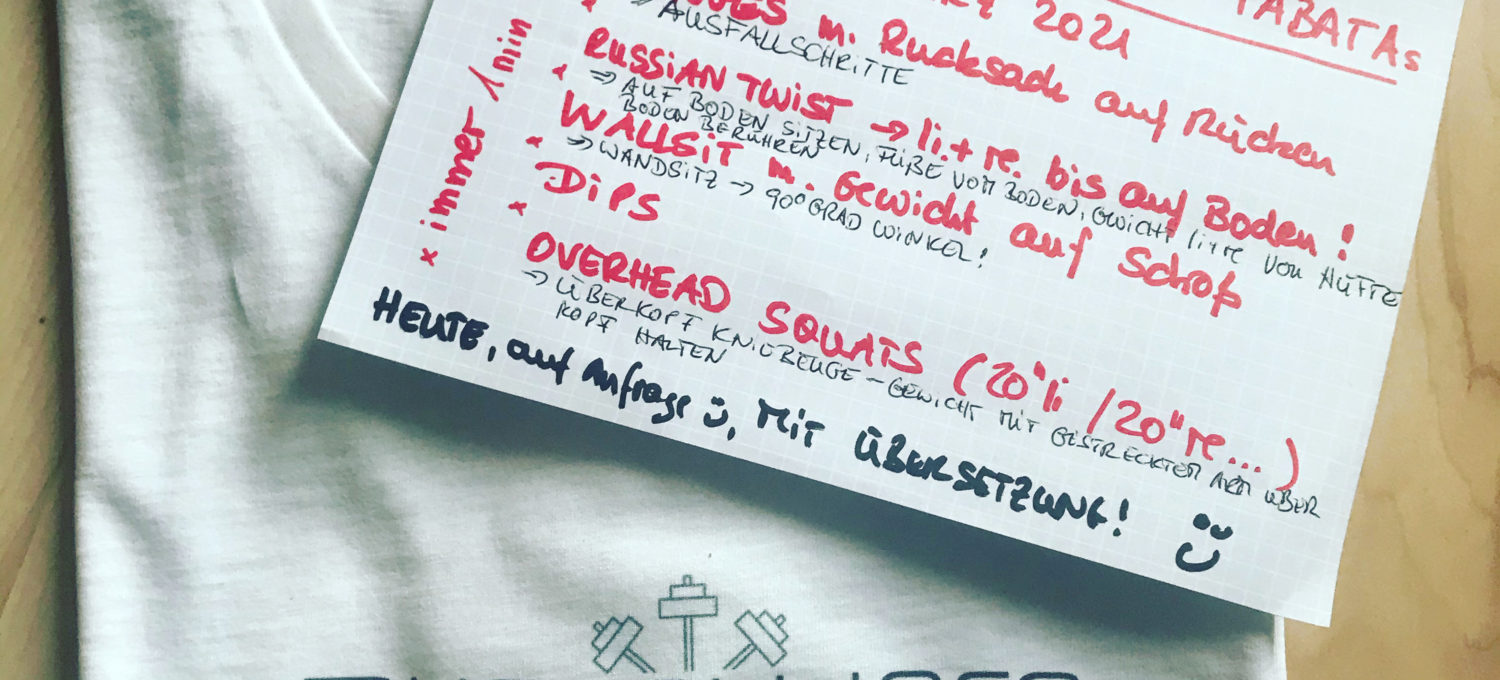 TABATAs
2021
m. Rucksack auf Rücken
⇒ AUSFALLSCHRITTE
x RUSSIAN TWIST → li.+ re. bis auf Boden!
⇒ AUF BODEN SITZEN, FÜßE VOM BODEN, GEWICHT li+re VON HÜFTE
BODEN BERÜHREN
x WALLSIT m. Gewicht auf Schoß
⇒ WANDSITZ → 90° GRAD WINKEL!
x DIPS
x OVERHEAD SQUATS (20" li /20" re...)
→ ÜBERKOPF KNIEBEUGE - GEWICHT MIT GESTRECKTEM ARM ÜBER
KOPF HALTEN
x immer 1 min
HEUTE, auf Anfrage, MIT ÜBERSETZUNG!